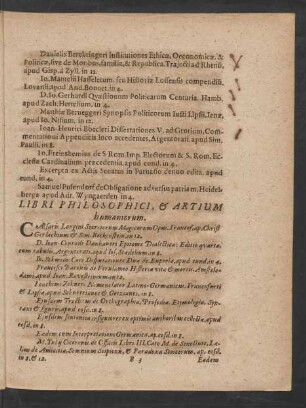 Danielis Berckringeri Institutiones Ethicæ, Oeconomicæ, &
Politicæ, sive de Moribus, familia, & Republica. Trajecti ad Rhenū,
apud Gisp. à Zyll. in 12.
Jo. Mantelii Hasseletum. seu Historiæ Lossensis compendiū.
Lovanii, apud And. Bouvet. in 4.
D. Jo. Gerhardi Quæstionum Politicarum Centuria. Hamb.
apud Zach. Hertelium. in 4.
Matthiæ Berneggeri Synopsis Politicorum Justi Lipsii. Jenæ,
apud Jo. Nisium. in 12.
Joan. Henrici Boecleri Dissertationes V. ad Grotium, Com-
mentationis Appendicis loco accedentes. Argentorati, apud Sim.
Paulli. in 8.
Jo. Freinshemius de S. Rom. Imp. Electorum & S. Rom. Ec-
clesiæ Cardinalium præcedentia. apud eund. in 4.
Excerpta ex Actis Senatus in Parnasso denuo edita. apud
eund. in 4.
Samuel Pufendorf de Obligatione adversus patriam. Heidel-
bergæ apud Adr. Wyngaerden in 4.
LIBRI PHILOSOPHICI, & ARTIUM
humaniorum.
Cæsaris Longini Trinum Magicum Opus. Francof. ap. Christ
Gerlachium & Sim. Beckenstein. in 12.
D. Joan. Conradi Danhaveri Epitome Dialectica: Editio quarta
cum tabulis. Argentorati, apud Jos. Städelium. in 8.
Jo. Schmidii
Francisci Baconis de Verulamio Historia vitæ & mortis. Amstelo-
dami, apud Joan. Ravesteinium in 12.
Joachim. Zehners Nomenclator Latino-Germanicus. Francofurti
& Lipsiæ, apud
Ejusdem Tractatus de Orthographia, Prosodia, Etymologia, Syn-
taxi & figuris, apud eosd.
apud
eosd. in 8.
Eadem cum Interpretatione Germanica, ap. eosd. in 8.
M. Tulij Ciceronis de Officiis Libri III, Cato M. de Senectute, Læ-
lius de Amicitia, Somnium Scipion. & Paradoxa Stoicorum, ap. eosd.
in 8. & 12.
B 3
Eadem